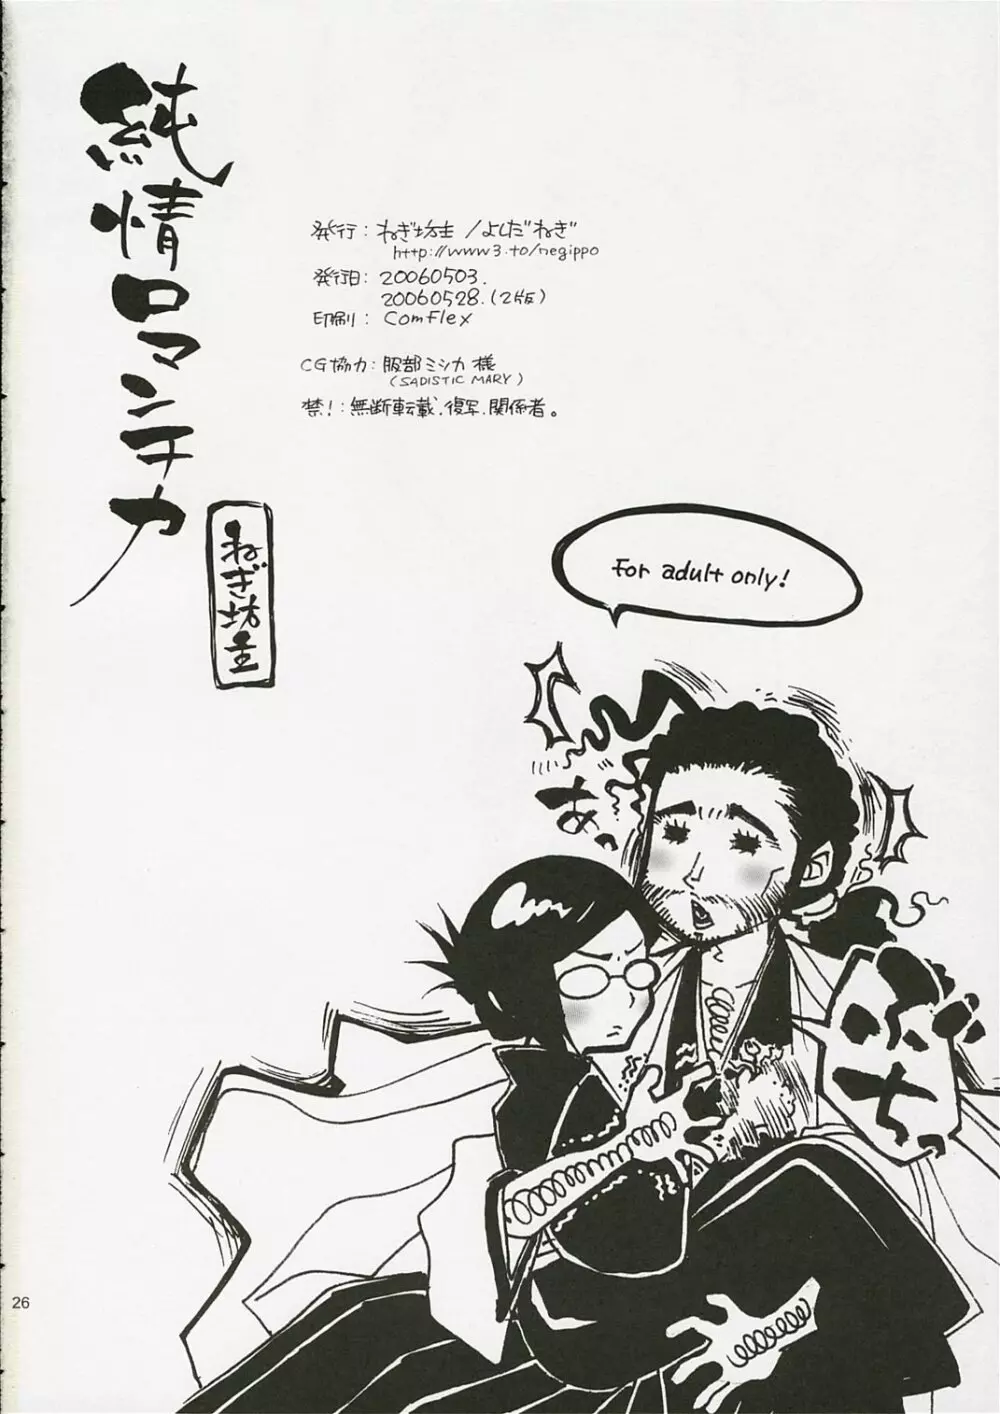 純情ロマンチカ
ねぎ坊主
発行：ねぎ坊主／よしだ"ねぎ"
http://www3.to/negippo
発行日：20060503.
20060528.(2版)
印刷：ComFlex
CG協力：服部ミシカ様
(SADISTIC MARY)
禁！：無断転載.復写.関係者。
For adult only!
あっ
ぶち
26